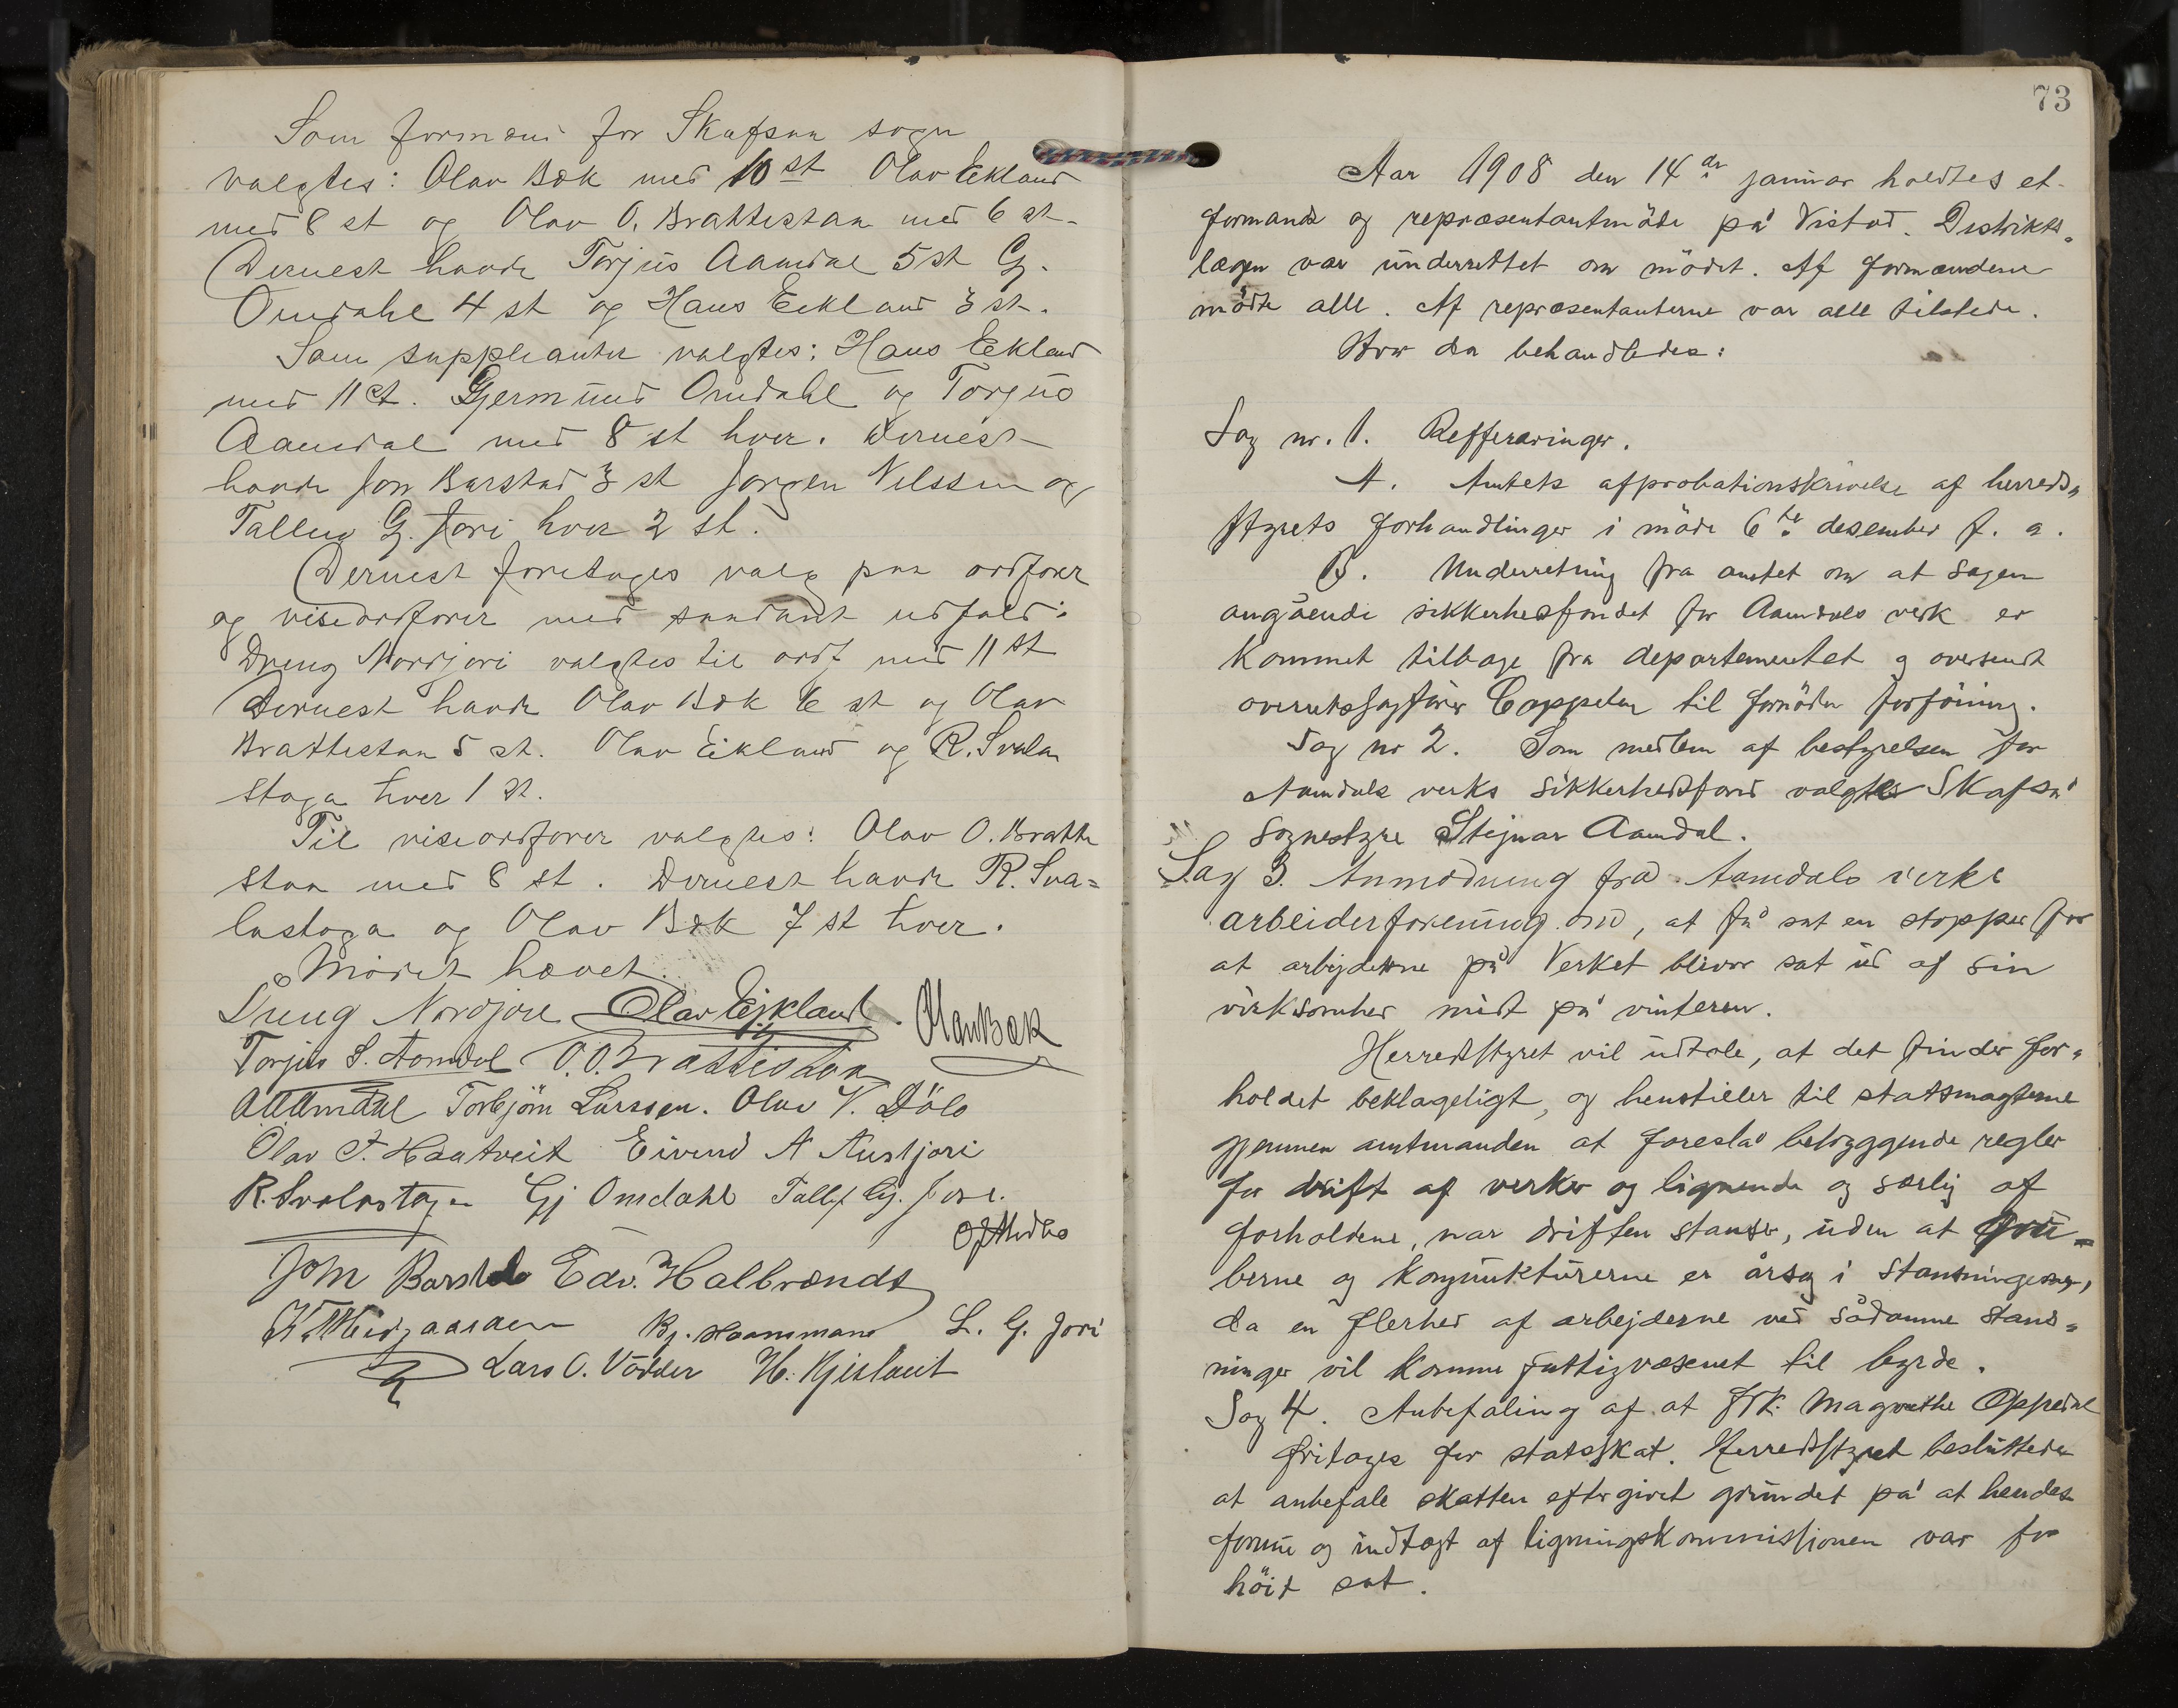 Som formænd for Skafsaa sogn
valgtes: Olav Bæk med 10 st Olav Eikland
med 8 st og Olav O. Brattestaa med 6 st.
Dernest havde Torjus Aamdal 5 st G.
Omdahl 4 st og Hans Eikland 3 st.
Som suppleanter valgtes: Hans Eikland
med 11 st. Gjermund Omdahl og Torjus
Aamdal med 8 st hver. Dernest
havde Jon Barstad 3 st Jørgen Nilssen og
Tallev G. Jori hver 2 st.
Dernest foretages valg paa ordfører
og viseordfører med saadant udfald:
Dreng Nordjori valgtes til ordf med 11 st
Dernest havde Olav Bæk 6 st og Olav
Brattestaa 5 st. Olav Eikland og R. Svala
stoga hver 1 st.
Til viseordfører valgtes: Olav O. Bratte
staa med 8 st. Dernest havde R. Sva=
lastoga og Olav Bæk 7 st hver.
Mødet hævet.
Dreng Nordjore Olav Eikland. Olav Bæk
Torjus S. Aamdal O. O. Brattestaa
Torbjörn Larssen. Olav V. Dölo
Olav T. Haatveit Eivind A Austjori
R. Svalastoga Gj Omdahl Tallef G. Jore.
John Barstad Edv. Halbrændt
Kj. Haammane L. G. Jori
Lars O. Vödder H. Kjislveit
73
Aar 1908 den 14de januar holdtes et
formands og repræsentantmöde på Vistad. Distrikts=
lægen var underrettet om mödet. Af formændene
mödte alle. Af repræsentanterne var alle tilstede.
Hvor da behandledes:
Sag nr. 1. Refferæringer.
A. Amtets afprobationskrivelse af herreds=
styrets forhandlinger i möde 6te desember f. a.
B. Underretning fra amtet om at sagen
angåénde sikkerhedsfondet for Aamdals verk er
kommet tilbage fra departementet og oversendt
overretssagförer Cappelen til fornöden forföining.
Sag nr 2. Som medlem af bestyrelsen for
Aamdals verks sikkerhedsfond valgtes Skafså
sognestyre Steinar Aamdal.
Sag 3. Anmodning fra Aamdals verks
arbeiderforening om, at få sat en stopper for
at arbejderne på Verket bliver sat ud af sin
virksomhed midt på vinteren.
Herredsstyret vil udtale, at det finder for=
holdet beklageligt, og henstiller til statsmagterne
gjennem amtmanden at foreslå betryggende regler
for drift af verker og lignende og særlig af
forholdene, når driften stanser, uden at gru=
berne og konjunkturerne er årsag i stansningerne,
da en flerhed af arbejderne ved sådanne stans=
ninger vil komme fattigvæsenet til byrde.
Sag 4. Anbefaling af at frk. Magrethe Oppedal
fritages for statsskat. Herredsstyret besluttede
at anbefale skatten eftergivet grundet på at hendes
formue og indtægt af ligningskommissionen var for
höit sat.